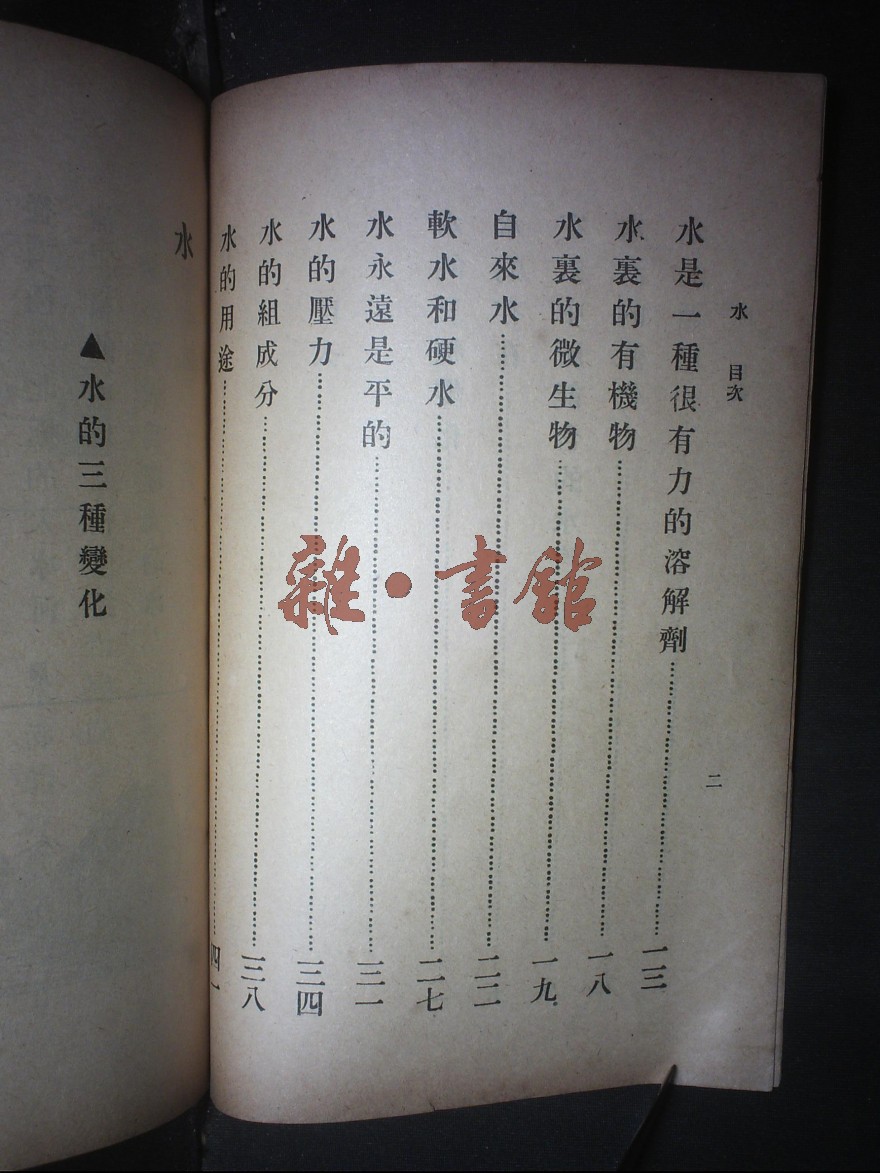 水 目次 二
水是一種很有力的溶解劑……一三
水裏的有機物……一八
水裏的微生物……一九
自來水……二二
軟水和硬水……二七
水永遠是平的……三一
水的壓力……三四
水的組成分……三八
水的用途……四一
水
▲水的三種變化
雜·書館